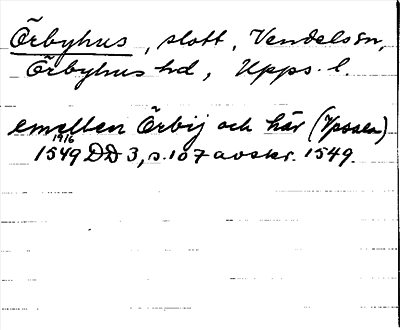 Örbyhus, slott, Vendels sn,
Örbyhus hd, Upps. l.
emellen Örbij och här (Vpsala)
19/6
1549 DD 3, s. 107 avskr. 1549.